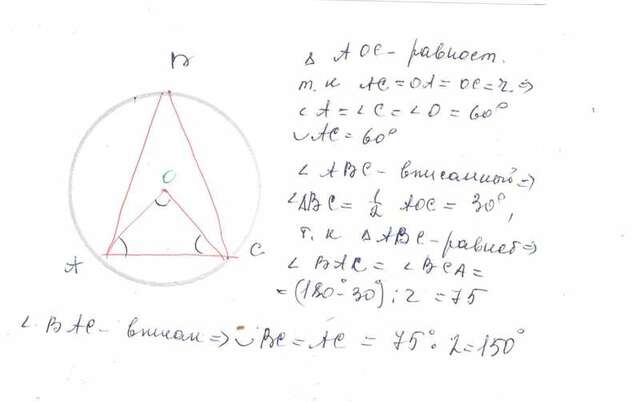 B
O
A
C
Δ AOC - равност.
т.к AC = OA = OC = r. ⇒
∠A = ∠C = ∠O = 60°
◡AC = 60°
∠ABC - вписанный ⇒
∠ABC = 1/2 AOC = 30°,
т.к Δ ABC - равност ⇒
∠BAC = ∠BCA =
= (180° - 30°) : 2 = 75
∠BAC - вписан ⇒ ◡BC = AC = 75° · 2 = 150°